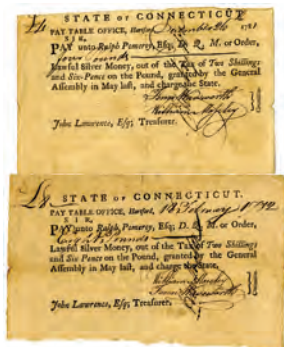 £4 STATE OF CONNECTICUT
PAY TABLE OFFICE, Hartford, 1781
SIR,
PAY unto Ralph Pomeroy, Esq; D. Q. M. or Order,
four Pounds
Lawful Silver Money, out of the Tax of Two Shillings
and Six-Pence on the Pound, granted by the General
Assembly in May last, and charge the State.
Committee
John Lawrence, Esq; Treasurer.
£8 STATE OF CONNECTICUT.
PAY TABLE OFFICE, Hartford, 18 February 1782
SIR,
PAY unto Ralph Pomeroy, Esq; D. Q. M. or Order,
Eight Pounds
Lawful Silver Money, out of the Tax of Two Shillings
and Six Pence on the Pound, granted by the General
Assembly in May last, and charge the State.
William Moseley
John Lawrence, Esq; Treasurer.